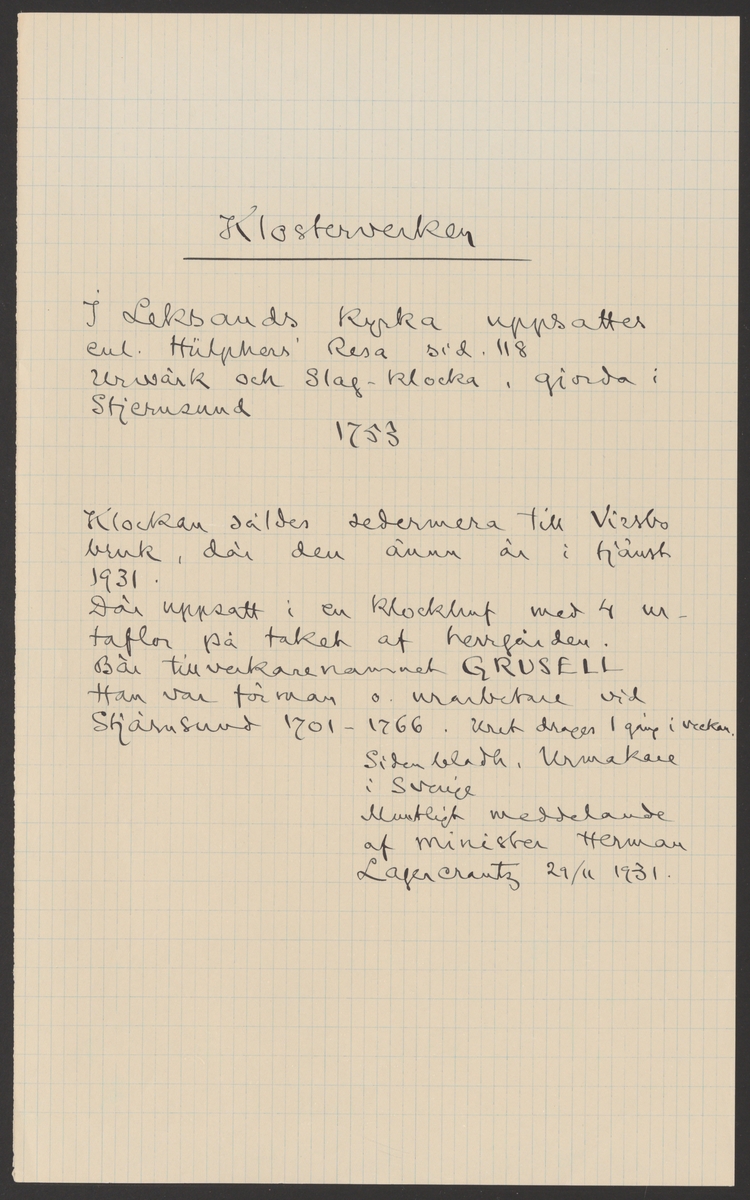 Klosterverken
I Leksands Kyrka uppsattes
enl. Hülphers' Resa sid. 118
Urwärk och Slag-klocka, gjorda i
Stjernsund
1753
Klockan såldes sedermera till Virsbo
bruk, där den ännu är i tjänst
1931.
Där uppsatt i en klockhuf med 4 ur-
taflor på taket af herrgården.
Bär tillverkarenamnet GRUSELL
Han var förman o. urarbetare vid
Stjärnsund 1701-1766. Uret drages 1 gång i veckan.
Sidenbladh, Urmakare
i Sverige
Muntligt meddelande
af minister Herman
Lagercrantz 29/11 1931.